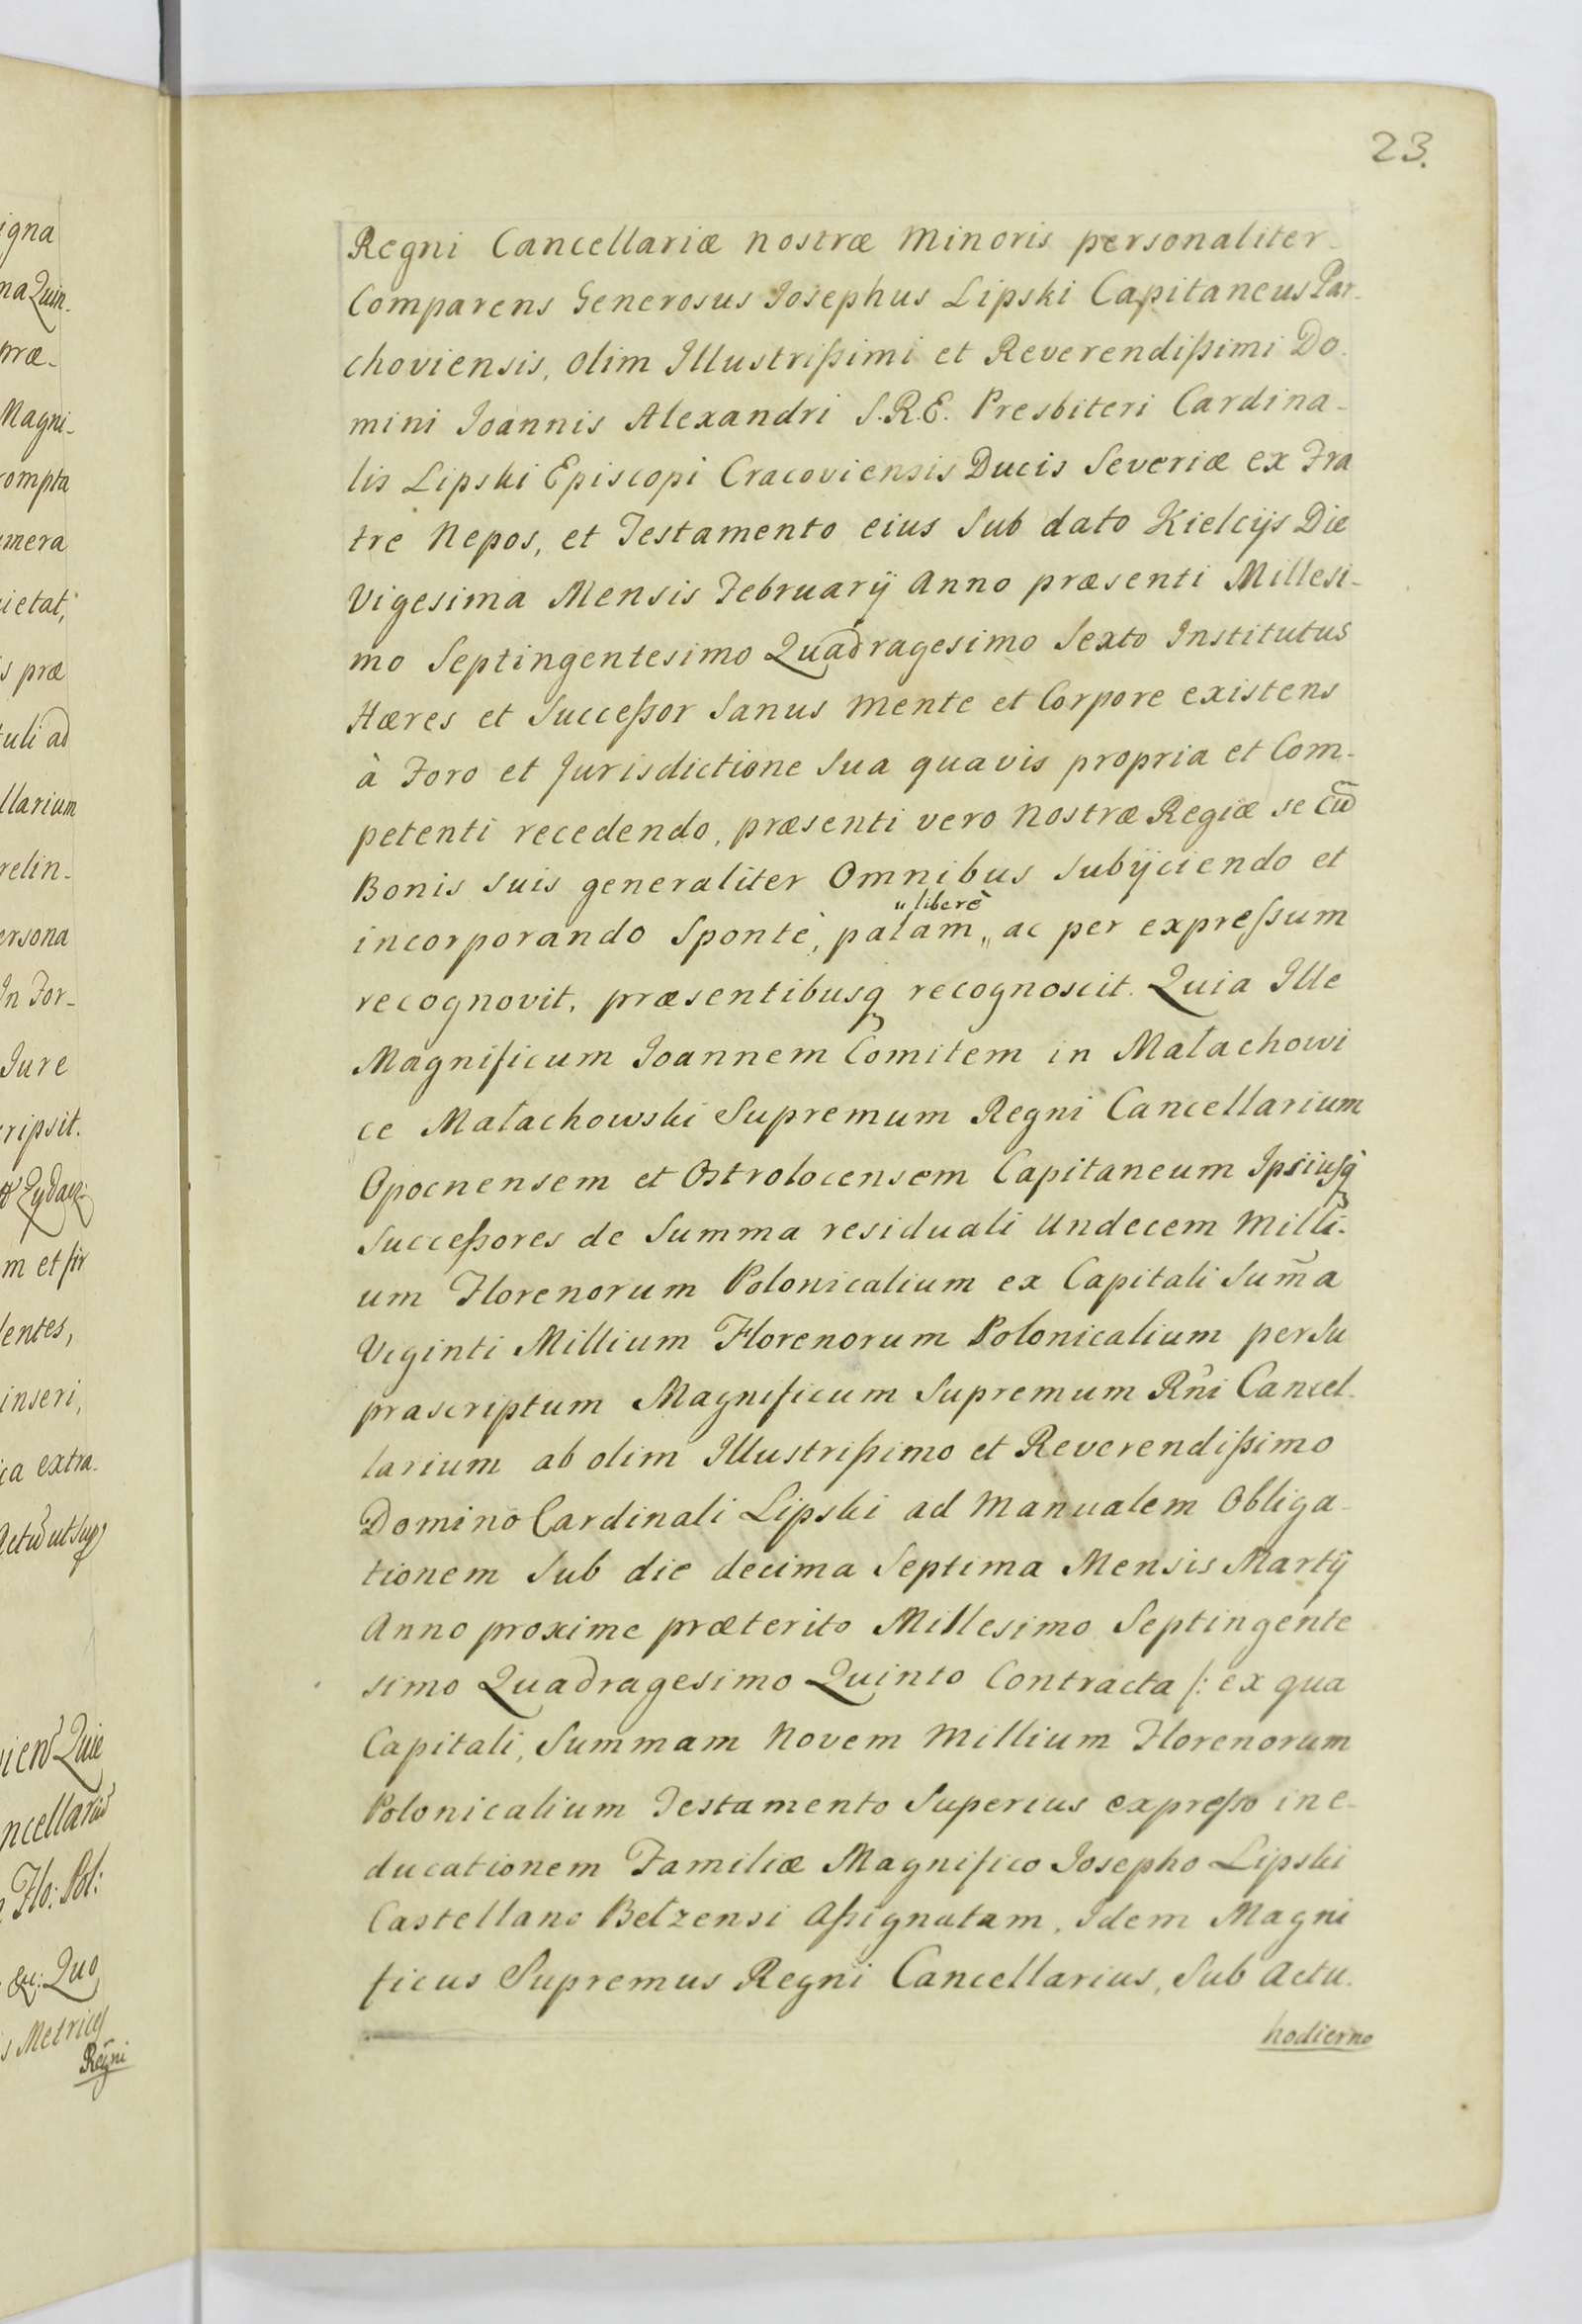 23.
Regni Cancellariæ nostræ Minoris personaliter
Comparens Generosus Josephus Lipski Capitaneus Par-
choviensis, olim Illustrißimi et Reverendißimi Do-
mini Joannis Alexandri S.R.E. Presbiteri Cardina-
lis Lipski Episcopi Cracoviensis Ducis Severiæ ex Fra
tre Nepos, et Testamento eius Sub dato Kielcijs Die
Vigesima Mensis Februarÿ Anno præsenti Millesi-
mo Septingentesimo Quadragesimo Sexto Institutus
Hæres et Succeßor Sanus Mente et Corpore existens
à Foro et Jurisdictione Sua quavis propria et Com-
petenti recedendo, præsenti vero Nostræ Regiæ se cũ
Bonis suis generaliter Omnibus Subijciendo et
" liberè
incorporando Spontè, palam „ ac per expreßum
recognovit, præsentibusq recognoscit. Quia Ille
Magnificum Joannem Comitem in Małachowi
ce Małachowski Supremum Regni Cancellarium
Opocnensem et Ostrolocensem Capitaneum Ipsiusq
Succeßores de Summa residuali Undecem Milli-
um Florenorum Polonicalium ex Capitali Sum̃a
Viginti Millium Florenorum Polonicalium per Su
prascriptum Magnificum Supremum Rñi Cancel-
larium ab olim Illustrißimo et Reverendißimo
Domino Cardinali Lipski ad Manualem Obliga-
tionem Sub die decima Septima Mensis Martÿ
Anno proxime præterito Millesimo Septingente
simo Quadragesimo Quinto Contracta /: ex qua
Capitali, Summam Novem Millium Florenorum
Polonicalium Testamento Superius expreßo in e-
ducationem Familiæ Magnifico Josepho Lipski
Castellano Bełzensi Aßignatam, Idem Magni
ficus Supremus Regni Cancellarius, Sub Actu
hodierno
igna
na Quin-
præ-
Magni-
compta
mera
ietat,
s præ
tuli ad
llarium
relin-
ersona
In For-
Jure
cripsit.
m et fir
dentes,
inseri,
ca extra-
Actũ ut sup
ncellariũ
Flo: Pol:
&c: Quo
s Metrices
Regni